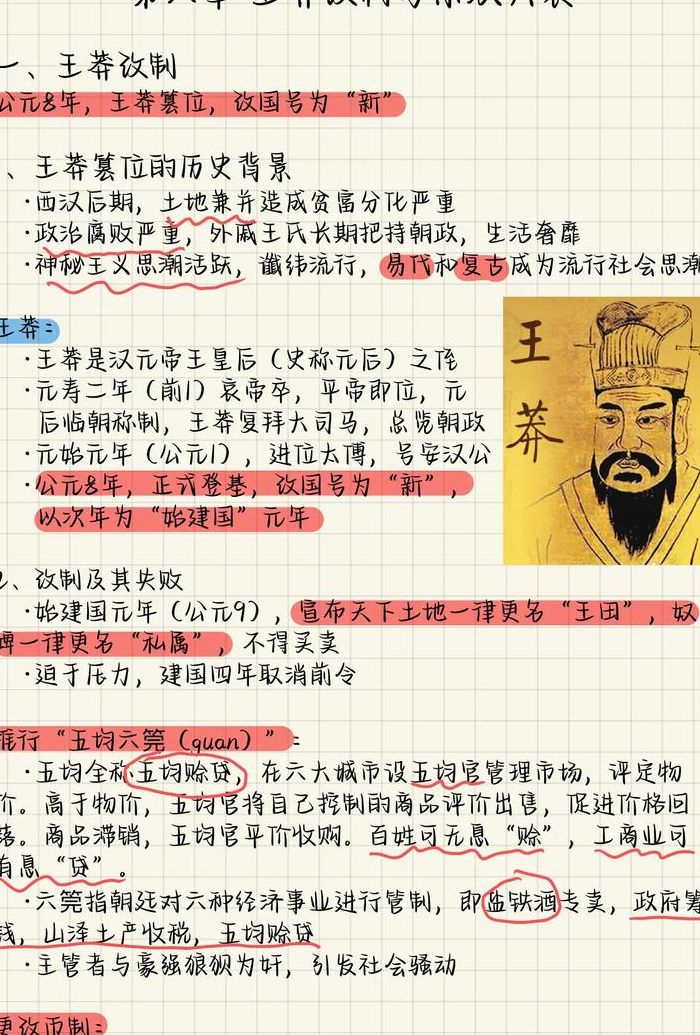 一、王莽改制
公元8年，王莽篡位，改国号为“新”
、王莽篡位的历史背景
·西汉后期，土地兼并造成贫富分化严重
·政治腐败严重，外戚王氏长期把持朝政，生活奢靡
·神秘主义思潮活跃，谶纬流行，易代和复古成为流行社会思潮
王莽：
·王莽是汉元帝王皇后（史称元后）之侄
·元寿二年（前1）哀帝卒，平帝即位，元
后临朝称制，王莽复拜大司马，总览朝政
·元始元年（公元1），进位太傅，号安汉公
·公元8年，正式登基，改国号为“新”，
以次年为“始建国”元年
王
莽
2、改制及其失败
·始建国元年（公元9），宣布天下土地一律更名“王田”，奴
婢一律更名“私属”，不得买卖
·迫于压力，建国四年取消前令
推行“五均六筦（quan）”：
·五均全称五均赊贷，在六大城市设五均官管理市场，评定物
价。高于物价，五均官将自己控制的商品评价出售，促进价格回
落。商品滞销，五均官平价收购。百姓可无息“赊”，工商业可
有息“贷”。
·六筦指朝廷对六种经济事业进行管制，即盐铁酒专卖，政府铸
钱，山泽土产收税，五均赊贷
·主管者与豪强狼狈为奸，引发社会骚动
更改币制：